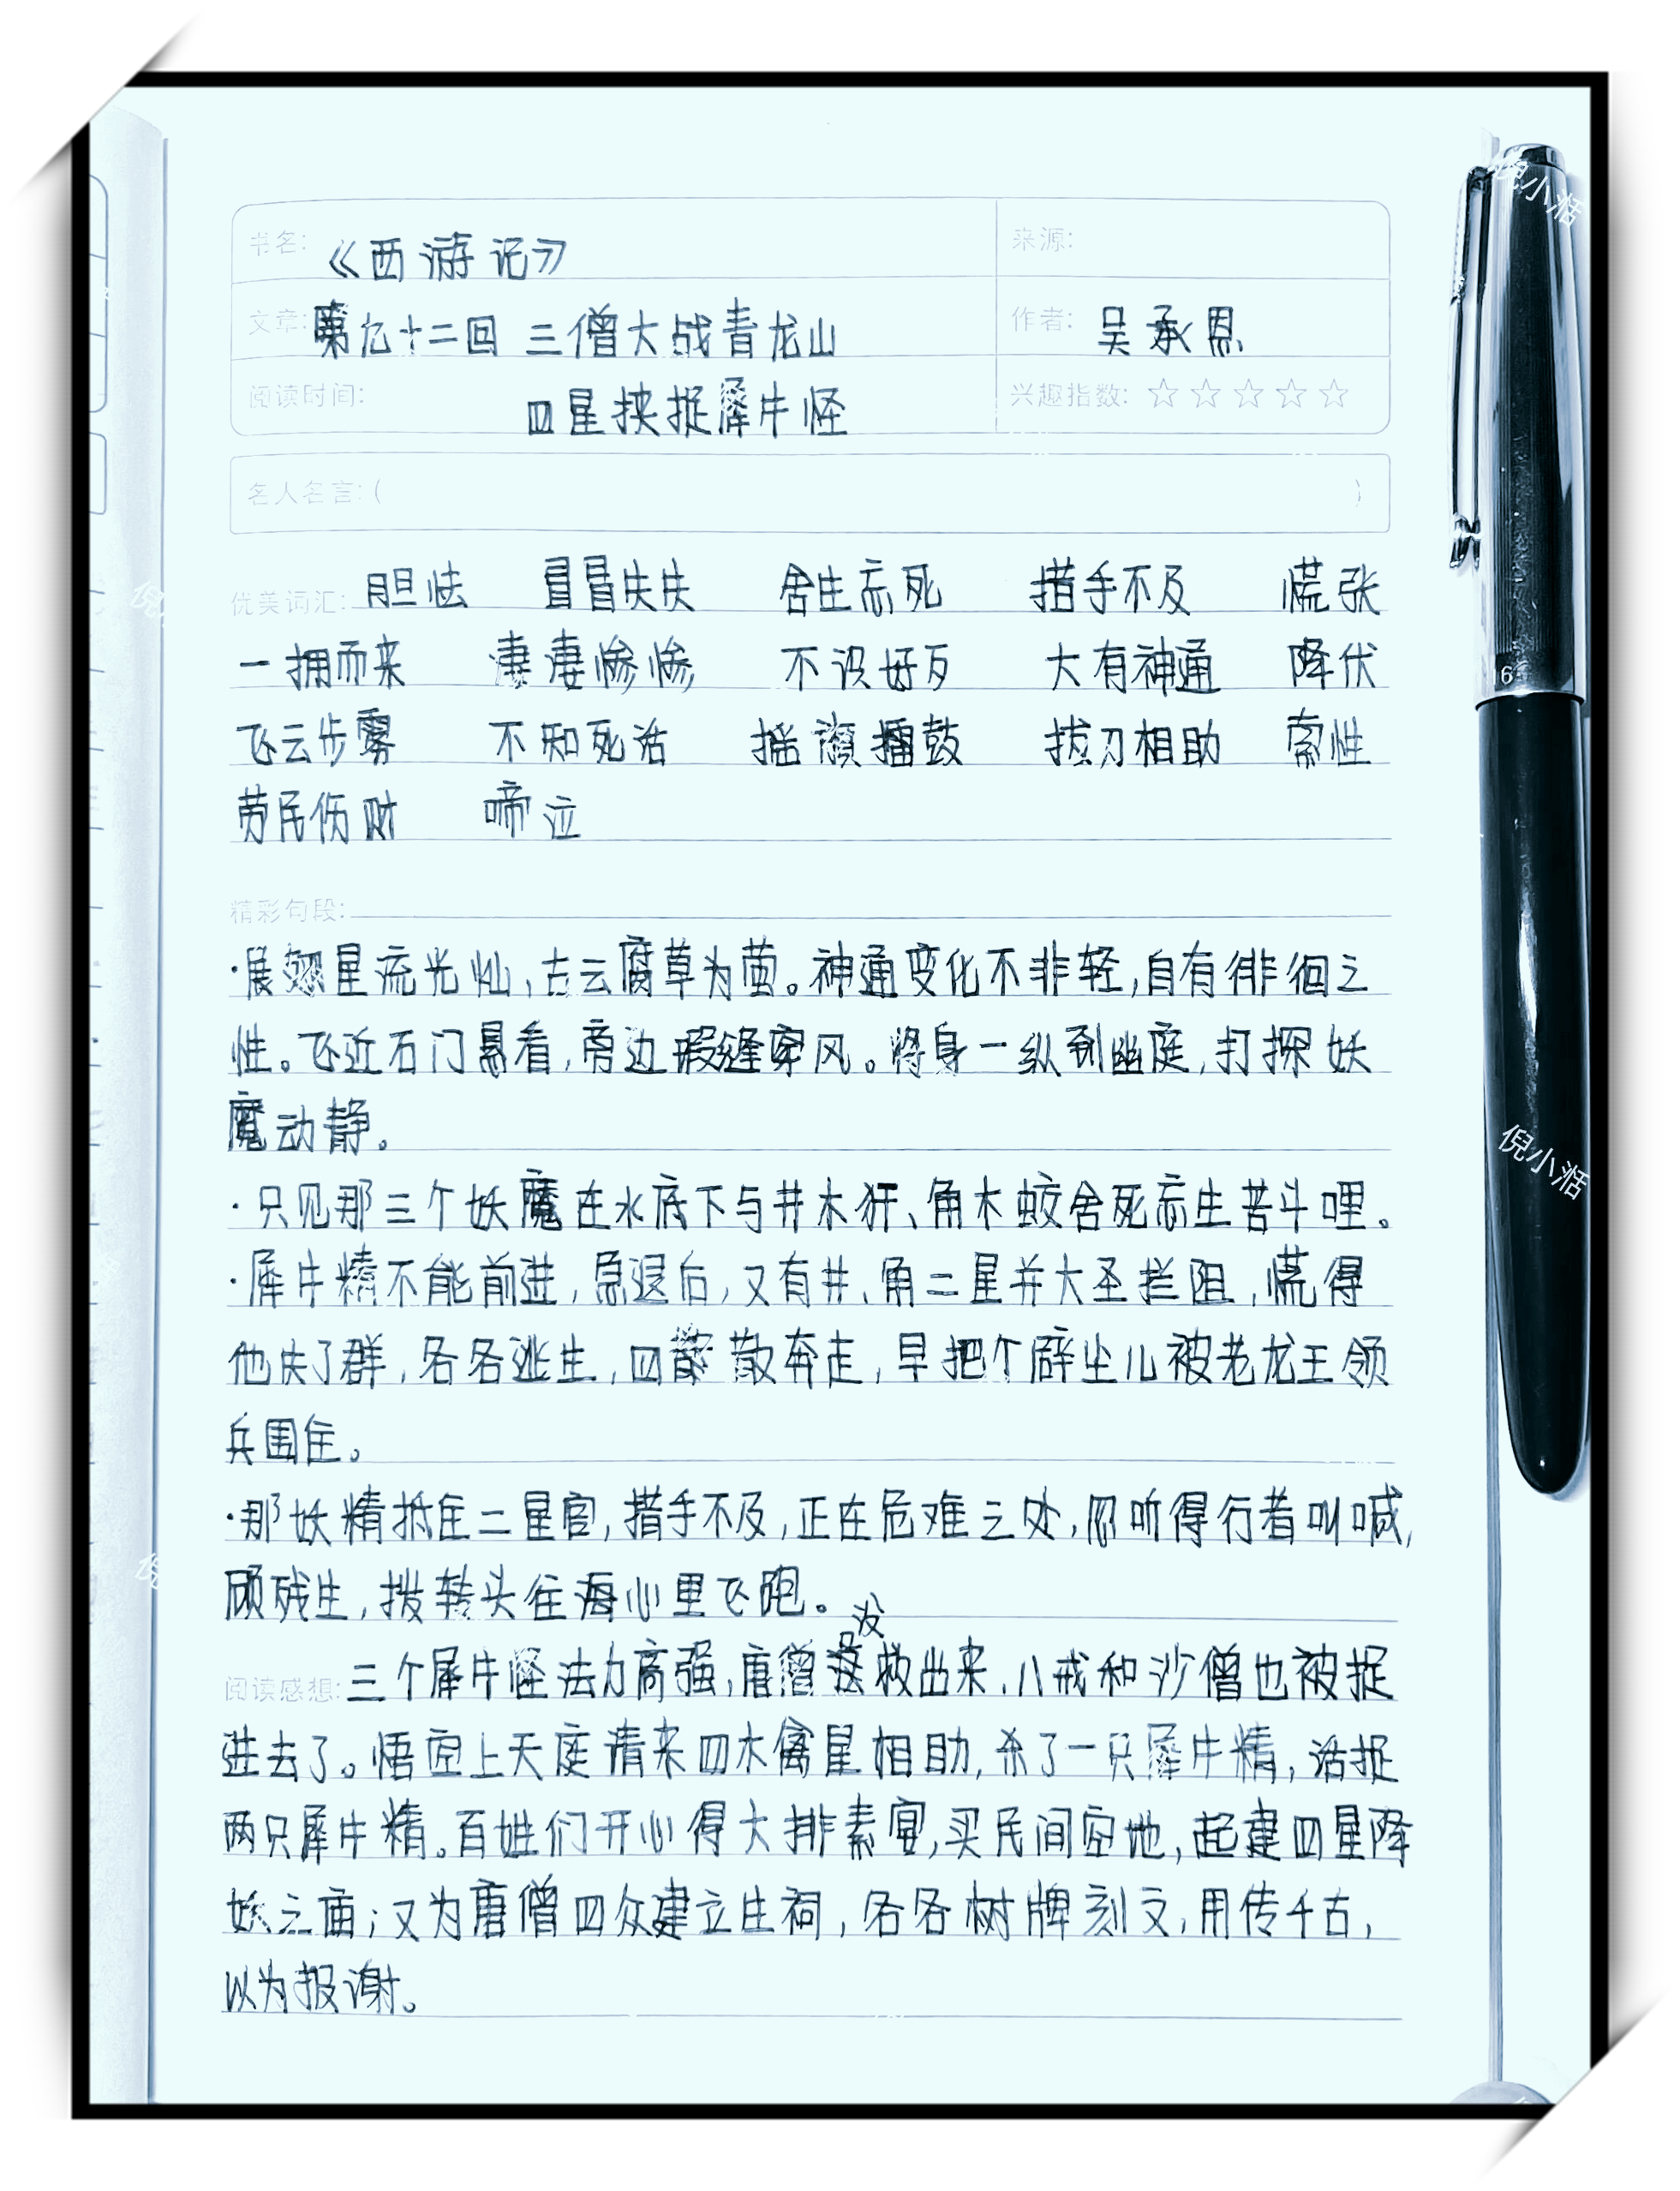 书名: 《西游记》 来源:
文章: 第九十二回 三僧大战青龙山 作者: 吴承恩
阅读时间: 四星挟捉犀牛怪 兴趣指数: ☆☆☆☆☆
名人名言: ( )
优美词汇: 胆怯 冒冒失失 舍生忘死 措手不及 慌张
一拥而来 凄凄惨惨 不识好歹 大有神通 降伏
飞云步雾 不知死活 摇旗擂鼓 拔刀相助 索性
劳民伤财 啼泣
精彩句段:
·展翅星流光灿,古云腐草为萤。神通变化不非轻,自有徘徊之
性。飞近石门悬看,旁边瑕缝穿风。将身一纵到幽庭,打探妖
魔动静。
·只见那三个妖魔在水底下与井木犴、角木蛟舍死忘生苦斗哩。
·犀牛精不能前进,急退后,又有井、角二星并大圣拦阻,慌得
他失了群,各各逃生,四散奔走,早把个辟尘儿被老龙王领
兵围住。
·那妖精抵住二星官,措手不及,正在危难之处,忽听得行者叫喊,
顾残生,拨转头往海心里飞跑。
没
阅读感想: 三个犀牛怪法力高强,唐僧救出来,八戒和沙僧也被捉
进去了。悟空上天庭请来四木禽星相助,杀了一只犀牛精,活捉
两只犀牛精。百姓们开心得大排素宴,买民间空地,起建四星降
妖之庙;又为唐僧四众建立生祠,各各树牌刻文,用传千古,
以为报谢。
倪小湉
倪小湉
6